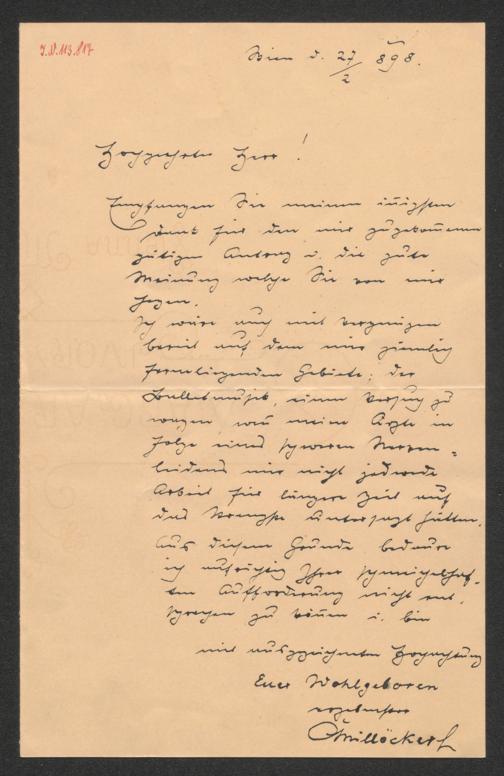 J.N. 113.817
Wien d. 27/2 898.
Hochgeehrter Herr!
Empfangen Sie meinen innigsten
Dank für den mir zugekommenen
gütigen Antrag u. die gute
Meinung welche Sie von mir
hegen.
Ich wäre auch mit Vergnügen
bereit auf dem mir ziemlich
fernliegenden Gebiete, der
Balletmusik, einen Versuch zu
wagen, wen̄ meine Ärzte in
Folge eines schweren Nerven-
leidens mir nicht jedwede
Arbeit für längere Zeit auf
das Strengste untersagt hätten.
Aus diesem Grunde bedaure
ich aufrichtig Ihrer schmeichelhaf-
ten Aufforderung nicht ent-
sprechen zu kön̄en u. bin
mit ausgezeichneter Hochachtung
Euer Wohlgeboren
ergebenster
CMillöcker